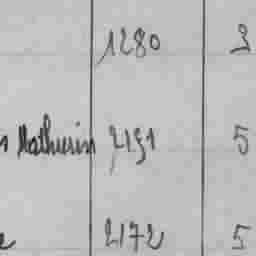 1280 3
s Mathurin 2151 5
e 2172 5